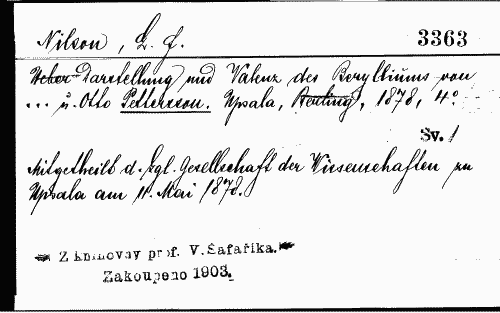 Nilson, L. F. 3363
Ueber Darstellung und Valenz des Berylliums von
... u. Otto Pettersson. Upsala, Berling, 1878, 4°.
Sv. 1
Mitgetheilt d. kgl. Gesellschaft der Wissenschaften zu
Upsala am 11. Mai 1878.
Z knihovny prof. V. Šafaříka.
Zakoupeno 1903.